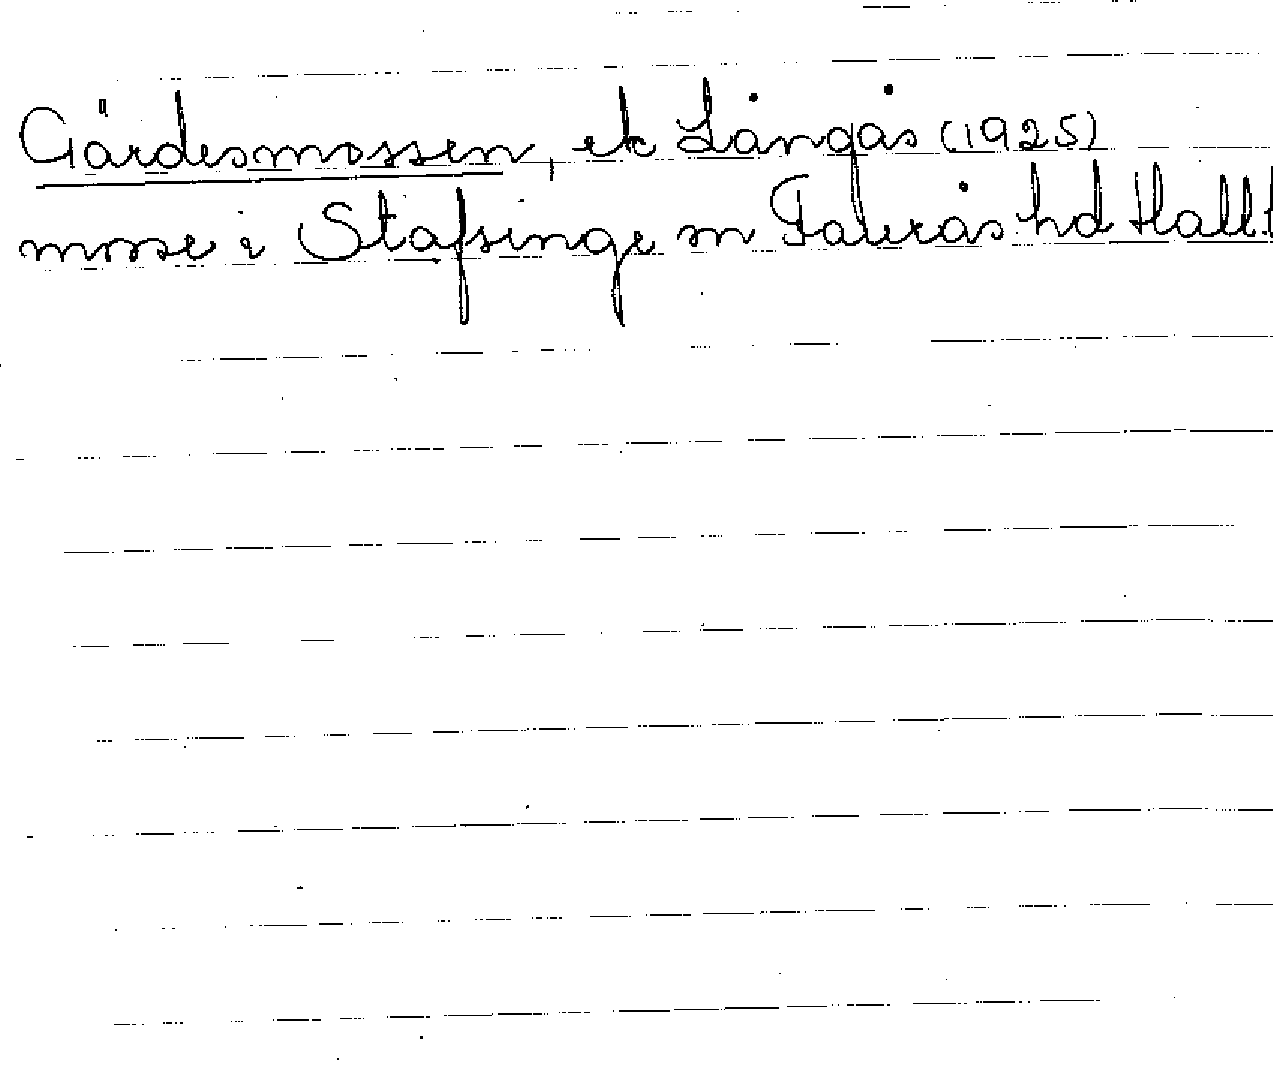 Gärdesmossen, ek Långås (1925)
mosse i Stafsinge sn Faurås hd Hall.